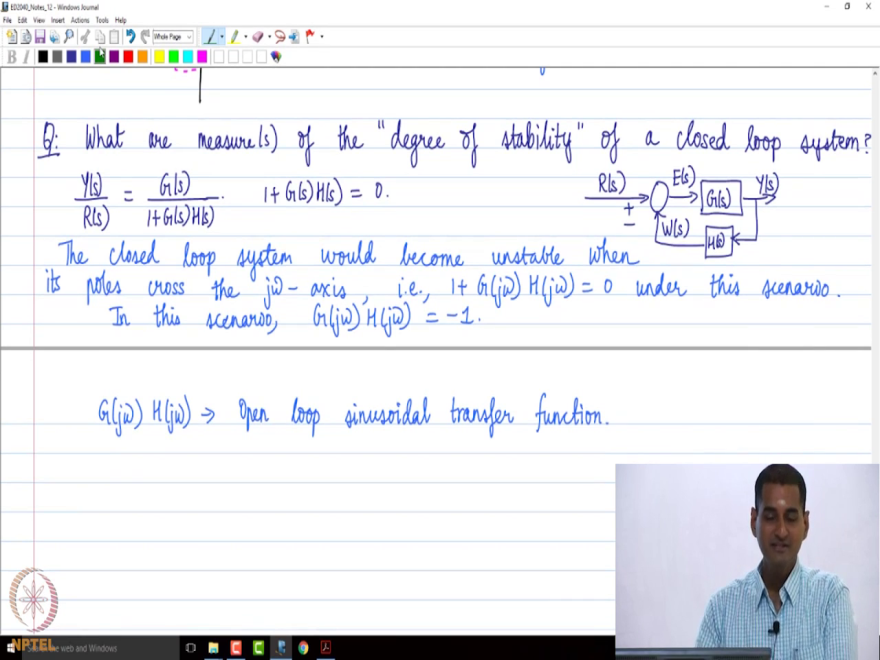 ED2040_Notes_12 - Windows Journal
File Edit View Insert Actions Tools Help
Whole Page
B I
Q: What are measure(s) of the "degree of stability" of a closed loop system?
Y(s)/R(s) = G(s)/1+G(s)H(s). 1+G(s)H(s) = 0.
R(s) E(s) G(s) Y(s)
+
− W(s) H(s)
The closed loop system would become unstable when
its poles cross the jω- axis, i.e., 1+G(jω)H(jω) = 0 under this scenario.
In this scenario, G(jω)H(jω) = -1.
G(jω)H(jω) → Open loop sinusoidal transfer function.
NPTEL
the web and Windows